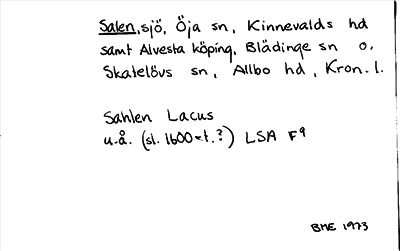 Salen, sjö, Öja sn, Kinnevalds hd
samt Alvesta köping, Blädinge sn o.
Skatelövs sn, Allbo hd, Kron. l.
Sahlen Lacus
u.å. (sl. 1600-t.?) LSA F9
BME 1973